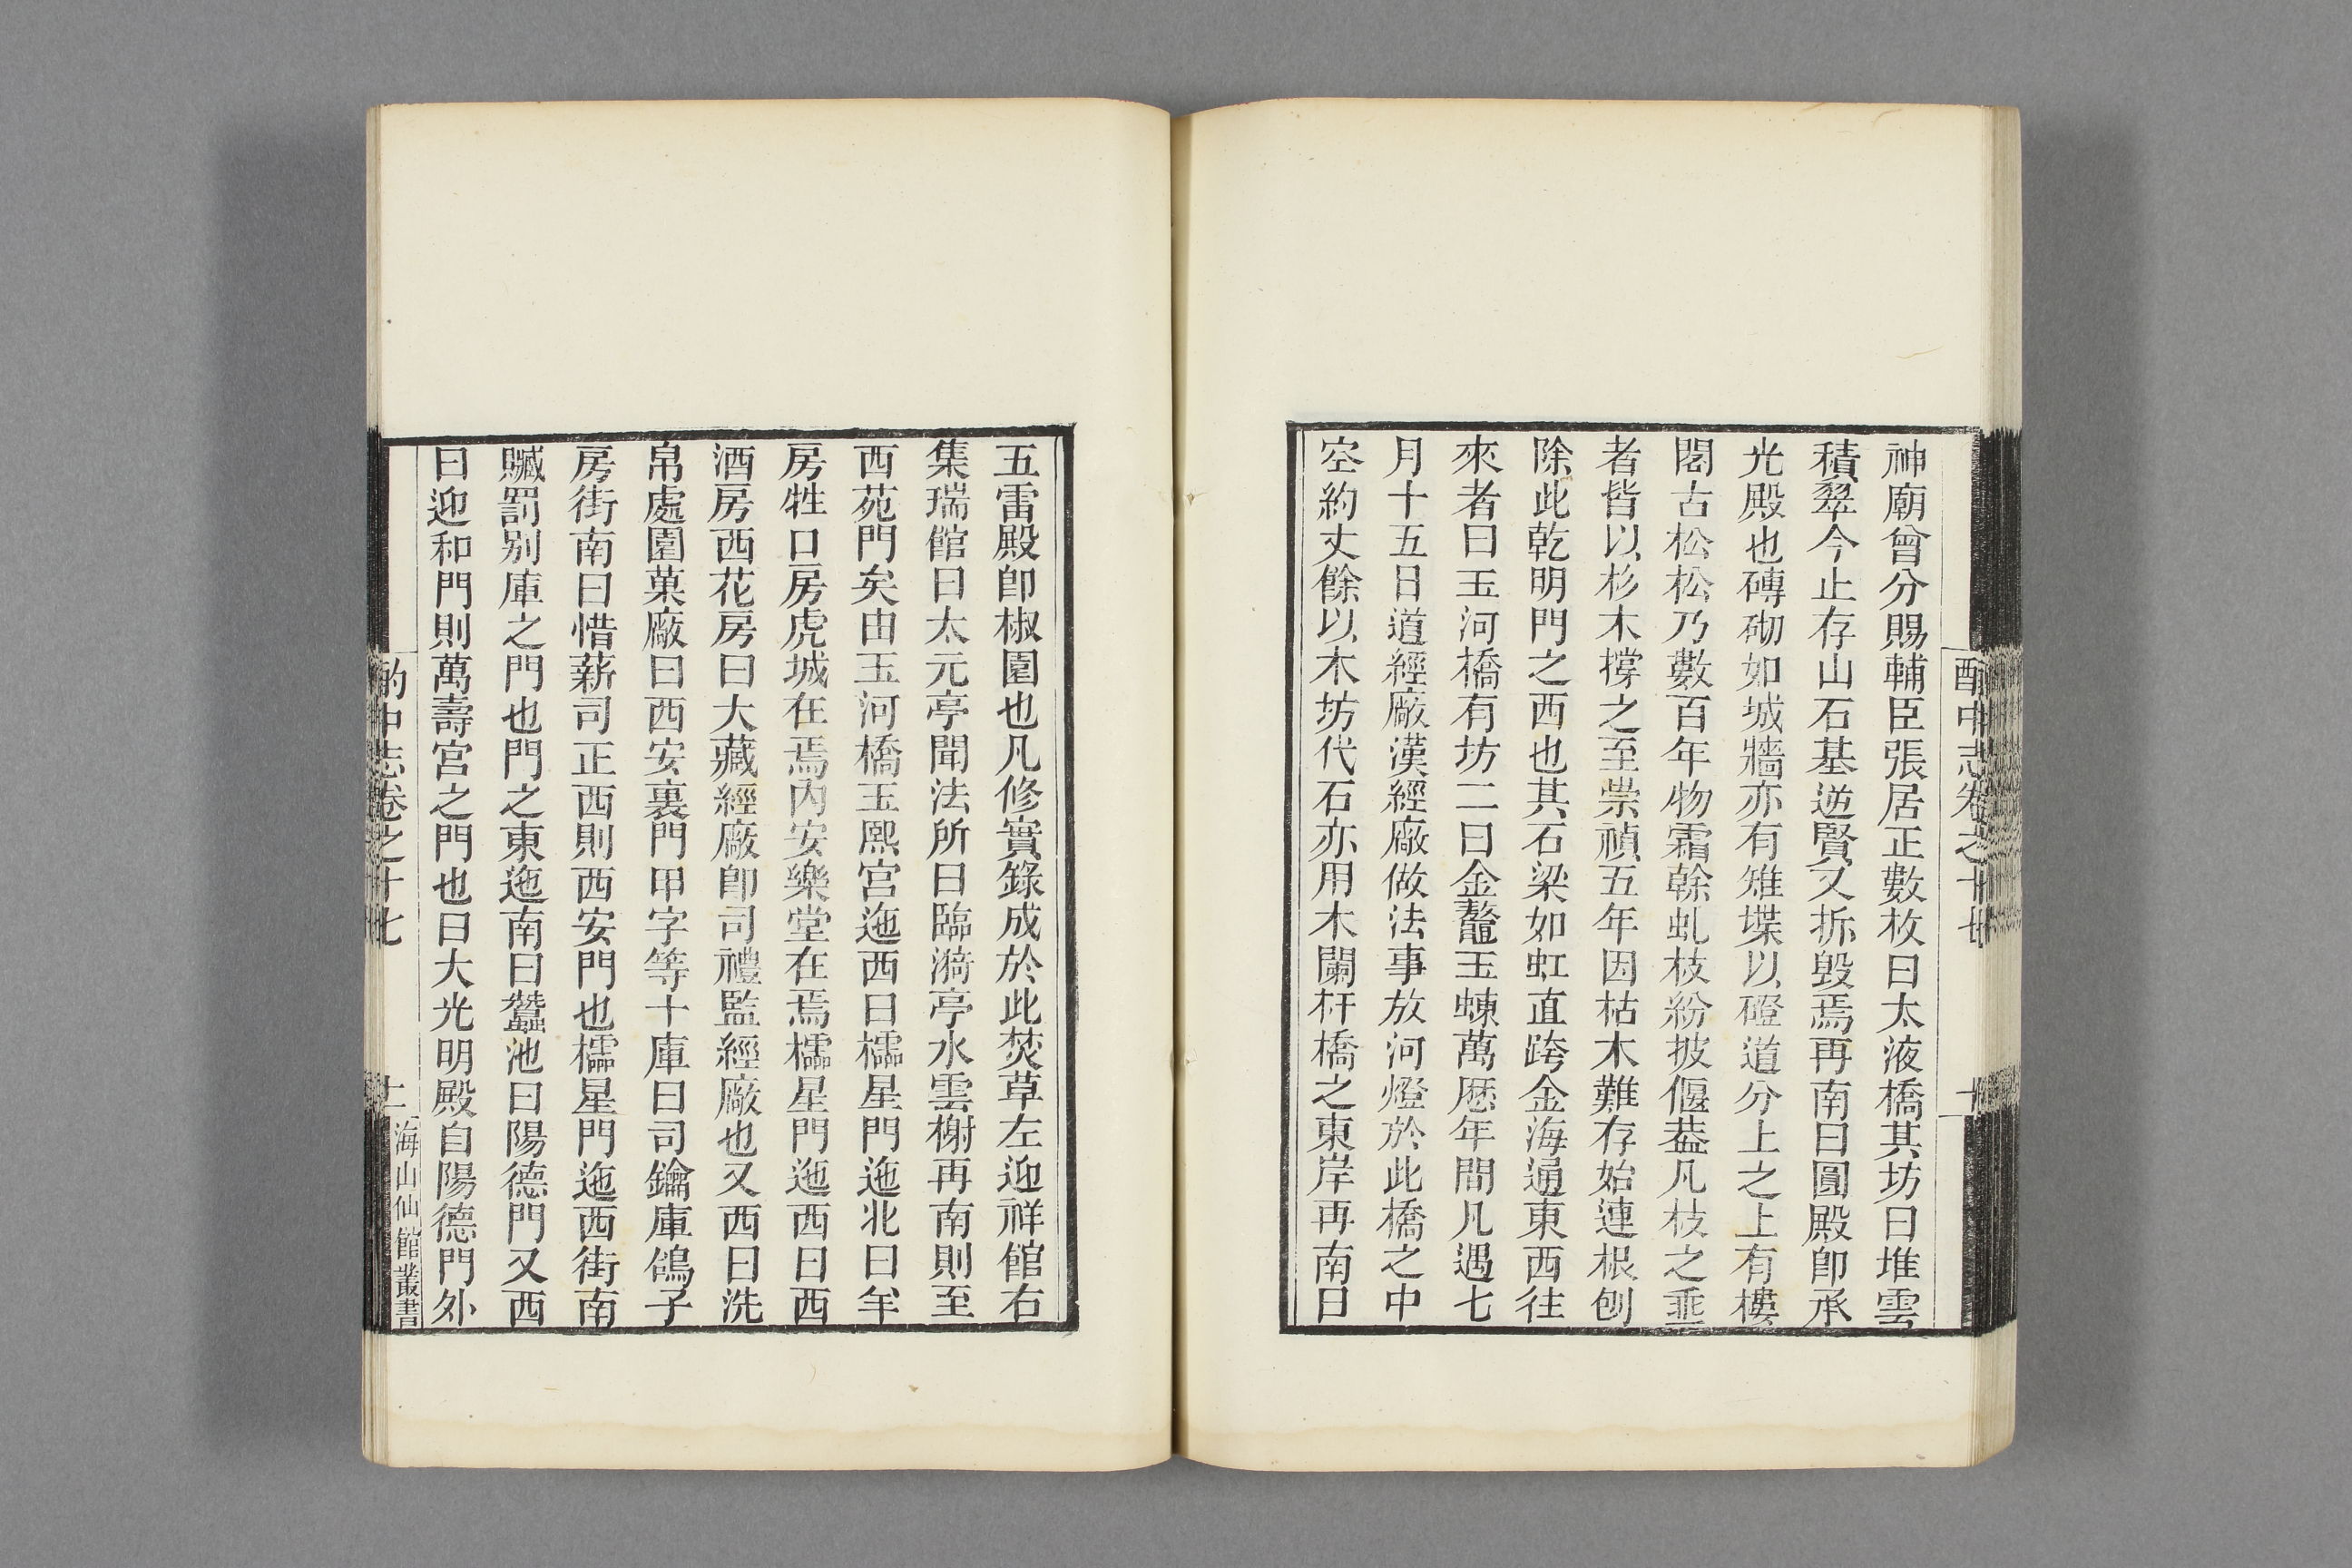 酌中志卷之十七
十
神廟曾分賜輔臣張居正數枚曰太液橋其坊曰堆雲
積翠今止存山石基遊賢又拆毀焉再南曰圓殿卽承
光殿也磚砌如城牆亦有雉堞以磴道分上之上有樓
閣古松松乃數百年物霜榦虬枝紛披偃葢凡枝之垂
者皆以杉木撐之至崇禎五年因枯木難存始連根刨
除此乾明門之西也其石梁如虹直跨金海通東西往
來者曰玉河橋有坊二曰金鰲玉蝀萬厯年間凡遇七
月十五日道經廠漢經廠做法事放河燈於此橋之中
空約丈餘以木坊代石亦用木闌杆橋之東岸再南曰
五雷殿卽椒園也凡修實錄成於此焚草左迎祥館右
集瑞館曰太元亭聞法所曰臨漪亭水雲榭再南則至
西苑門矣由玉河橋玉熙宮迤西曰櫺星門迤北曰羊
房牲口房虎城在焉內安樂堂在焉櫺星門迤西曰西
酒房西花房曰大藏經廠卽司禮監經廠也又西曰洗
帛處圍菓廠曰西安裏門甲字等十庫曰司鑰庫鴿子
房街南曰惜薪司正西則西安門也櫺星門迤西街南
贓罰別庫之門也門之東迤南曰蠶池曰陽德門又西
曰迎和門則萬壽宮之門也曰大光明殿自陽德門外
酌中志卷之十七
十一
海山仙館叢書